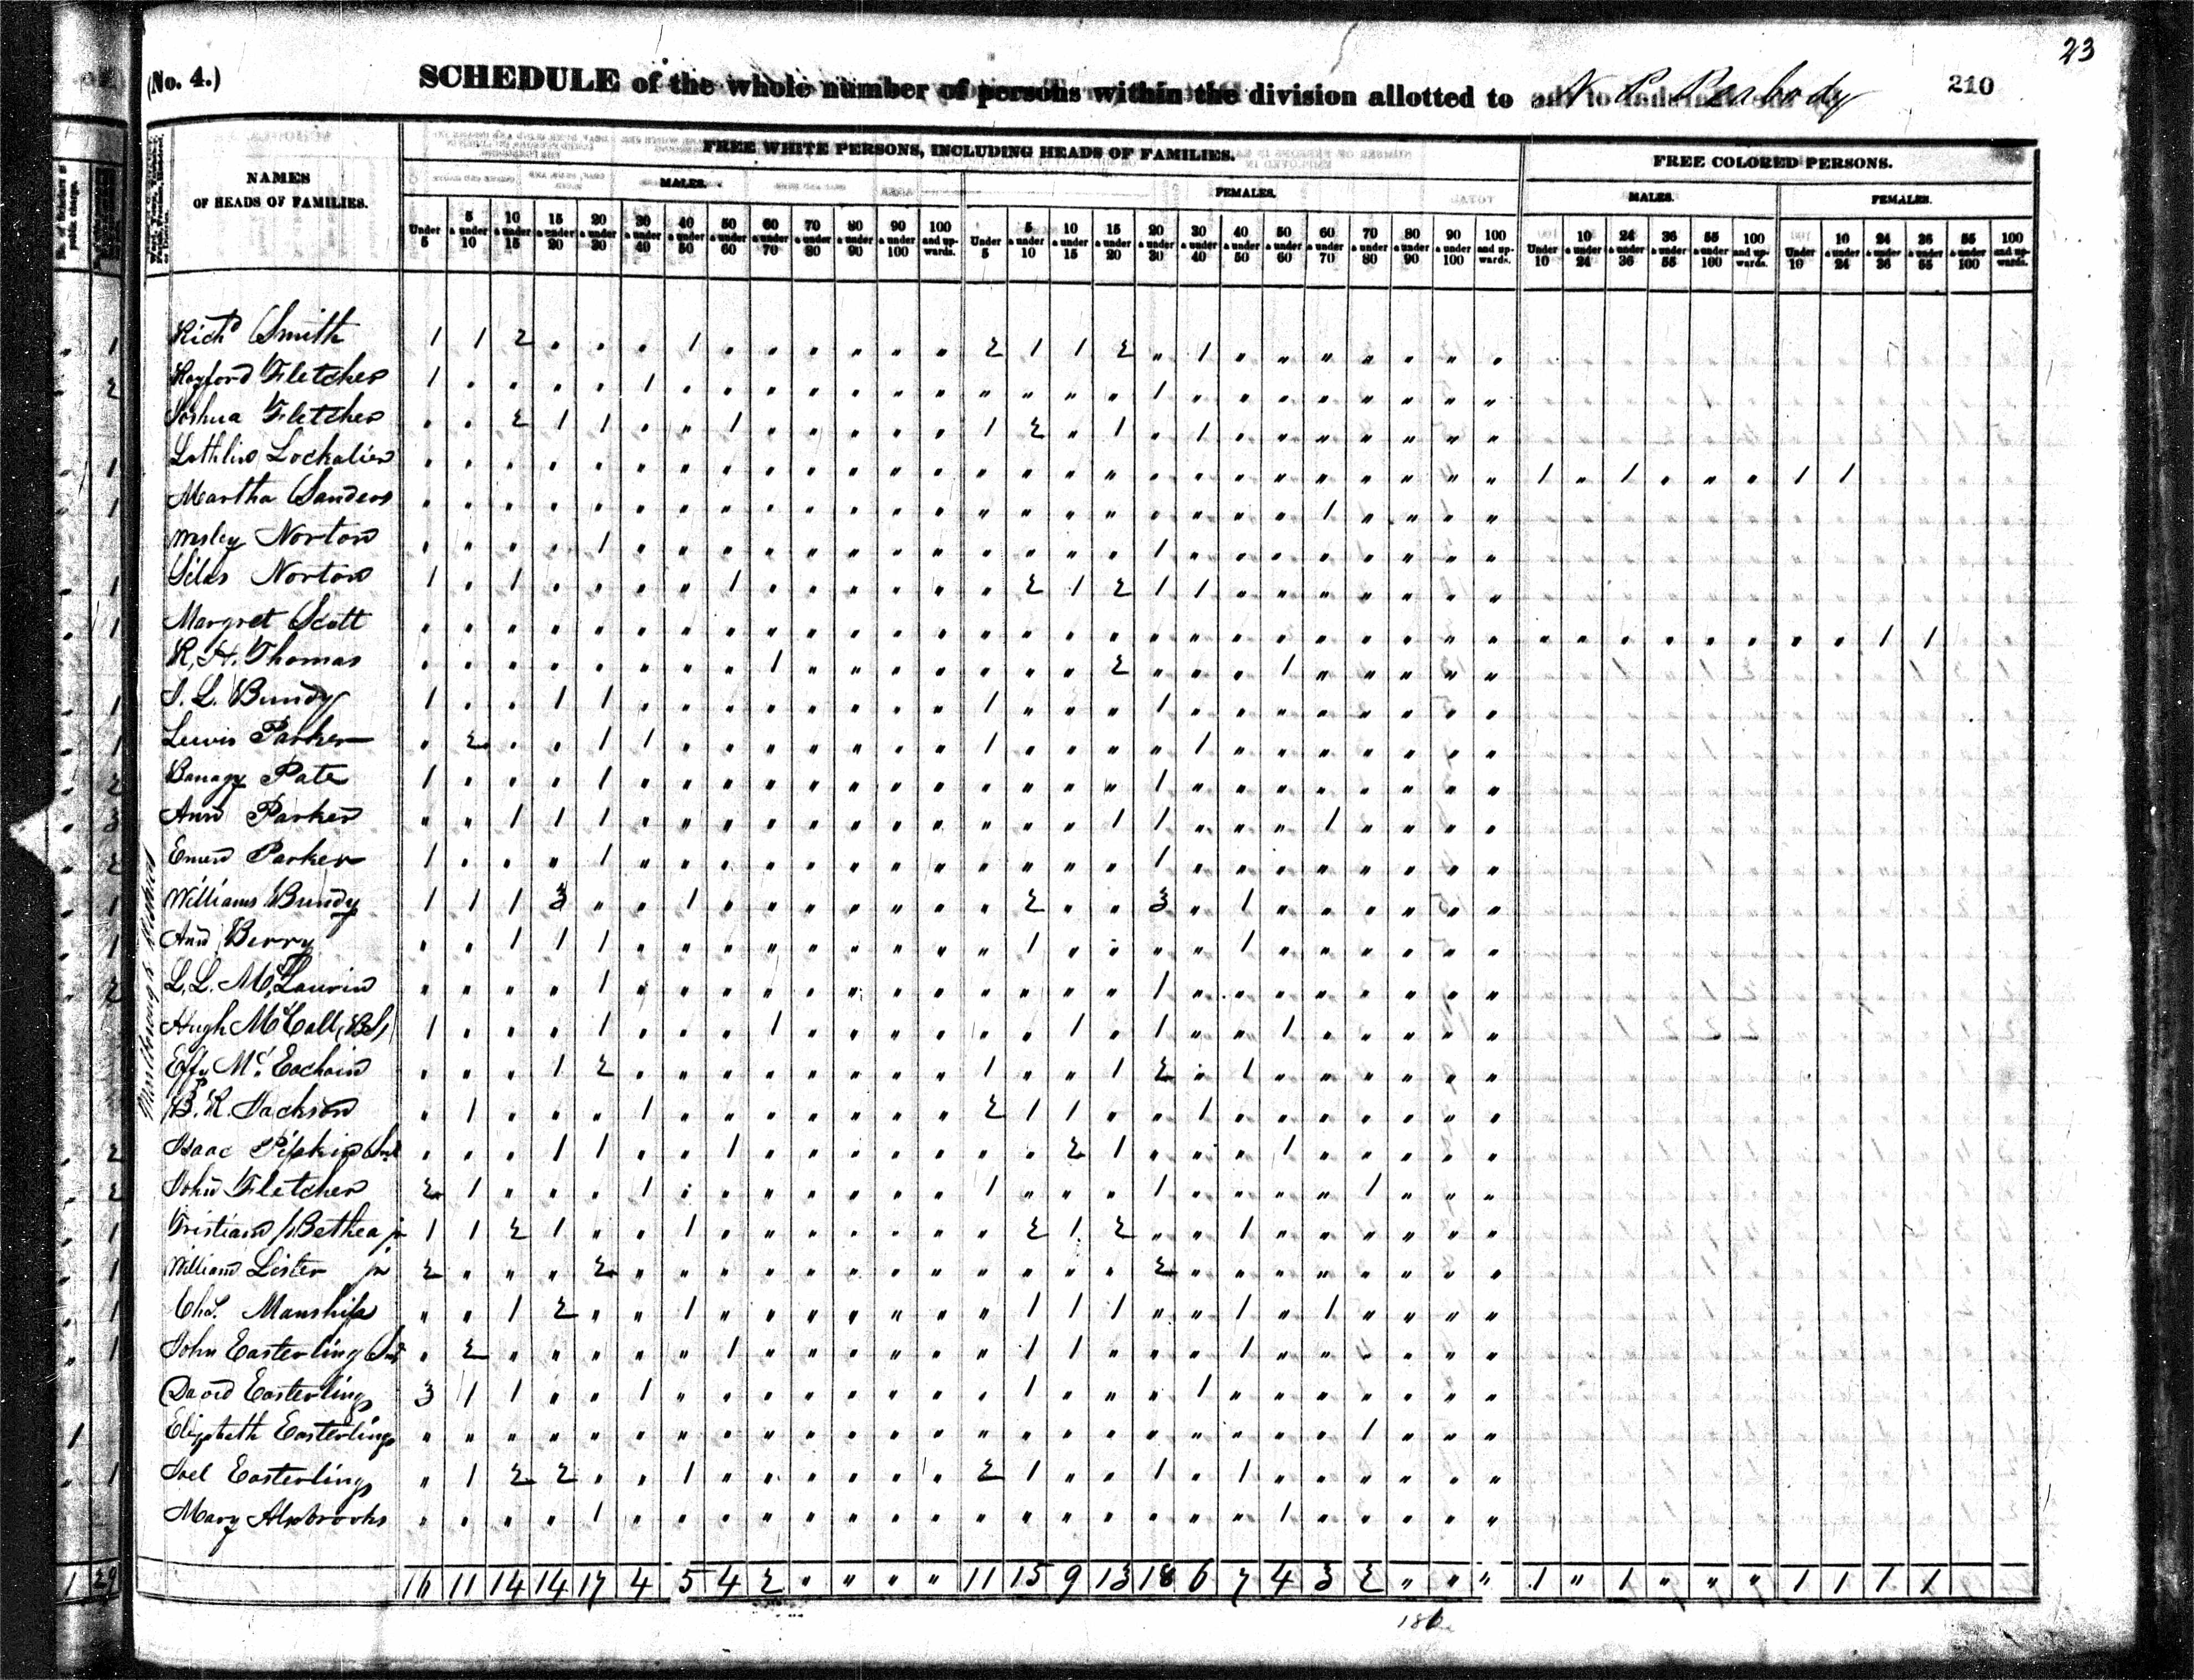 23
(No. 4.) SCHEDULE of the whole number of persons within the division allotted to N. P. Peabody 210
NAMES OF HEADS OF FAMILIES.
FREE WHITE PERSONS, INCLUDING HEADS OF FAMILIES.
FREE COLORED PERSONS.
MALES. FEMALES. MALES. FEMALES.
Under 5 | 5 & under 10 | 10 & under 15 | 15 & under 20 | 20 & under 30 | 30 & under 40 | 40 & under 50 | 50 & under 60 | 60 & under 70 | 70 & under 80 | 80 & under 90 | 90 & under 100 | 100 and upwards. | Under 5 | 5 & under 10 | 10 & under 15 | 15 & under 20 | 20 & under 30 | 30 & under 40 | 40 & under 50 | 50 & under 60 | 60 & under 70 | 70 & under 80 | 80 & under 90 | 90 & under 100 | 100 and upwards. | Under 10 | 10 & under 24 | 24 & under 36 | 36 & under 55 | 55 & under 100 | 100 and upwards. | Under 10 | 10 & under 24 | 24 & under 36 | 36 & under 55 | 55 & under 100 | 100 and upwards.
Richd Smith 1 1 2 1 2 1 1 2 1
Rayford Fletcher 1 1 1
Joshua Fletcher 2 1 1 1 1 2 1 1
Lockalier 1 1 1 1
Martha Sanders 1
Wesley Norton 1 1
Silas Norton 1 1 1 2 1 2 1 1
Margret Scott 1 1
R. H. Thomas 1 2 1
J. L. Bundy 1 1 1 1 1
Lewis Parker 2 1 1 1 1
Pate 1 1 1
Ann Parker 1 1 1 1 1 1
Parker 1 1 1
Williams Bundy 1 1 1 3 1 2 3 1
Ann Berry 1 1 1 1 1
L. L. McLaurin 1 1
Hugh McCall 1 1 1 1 1 1
Effy Mc Eachain 1 2 1 1 2 1
P. R. Jackson 1 1 2 1 1 1
Isaac Pipkin Snr 1 1 1 2 1 1
John Fletcher 2 1 1 1 1 1
Tristiam Bethea jr 1 1 2 1 1 2 1 2 1
William Lister jr 2 2 2
Chas. Manship 1 2 1 1 1 1 1 1
John Easterling Snr 2 1 1 1 1
David Easterling 3 1 1 1 1 1
Elizabeth Easterling 1
Joel Easterling 1 2 2 1 2 1 1 1
Mary Alsbrooks 1 1
16 11 14 14 17 4 5 4 2 " " " " 11 15 9 13 18 6 7 4 3 2 " " " 1 " 1 " " " 1 1 1 1
186